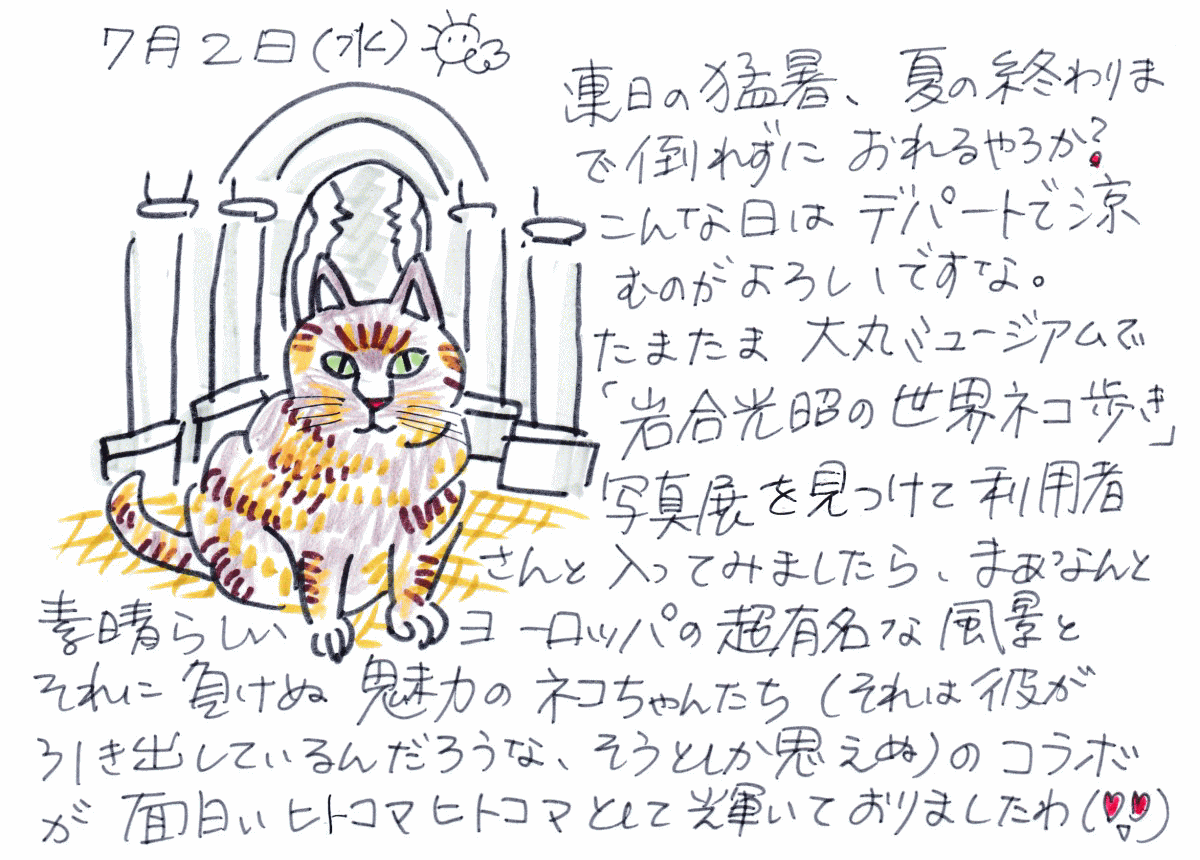 7月2日(水)
連日の猛暑、夏の終わりま
で倒れずに おれるやろか?
こんな日は デパートで涼
むのがよろしいですな。
たまたま 大丸ミュージアムで
「岩合光昭の世界ネコ歩き」
写真展を見つけて利用者
さんと入ってみましたら、まぁなんと
素晴らしい ヨーロッパの超有名な風景と
それに負けぬ 魅力のネコちゃんたち(それは彼が
引き出しているんだろうな、そうとしか思えぬ)のコラボ
が 面白いヒトコマヒトコマとして輝いておりましたわ(